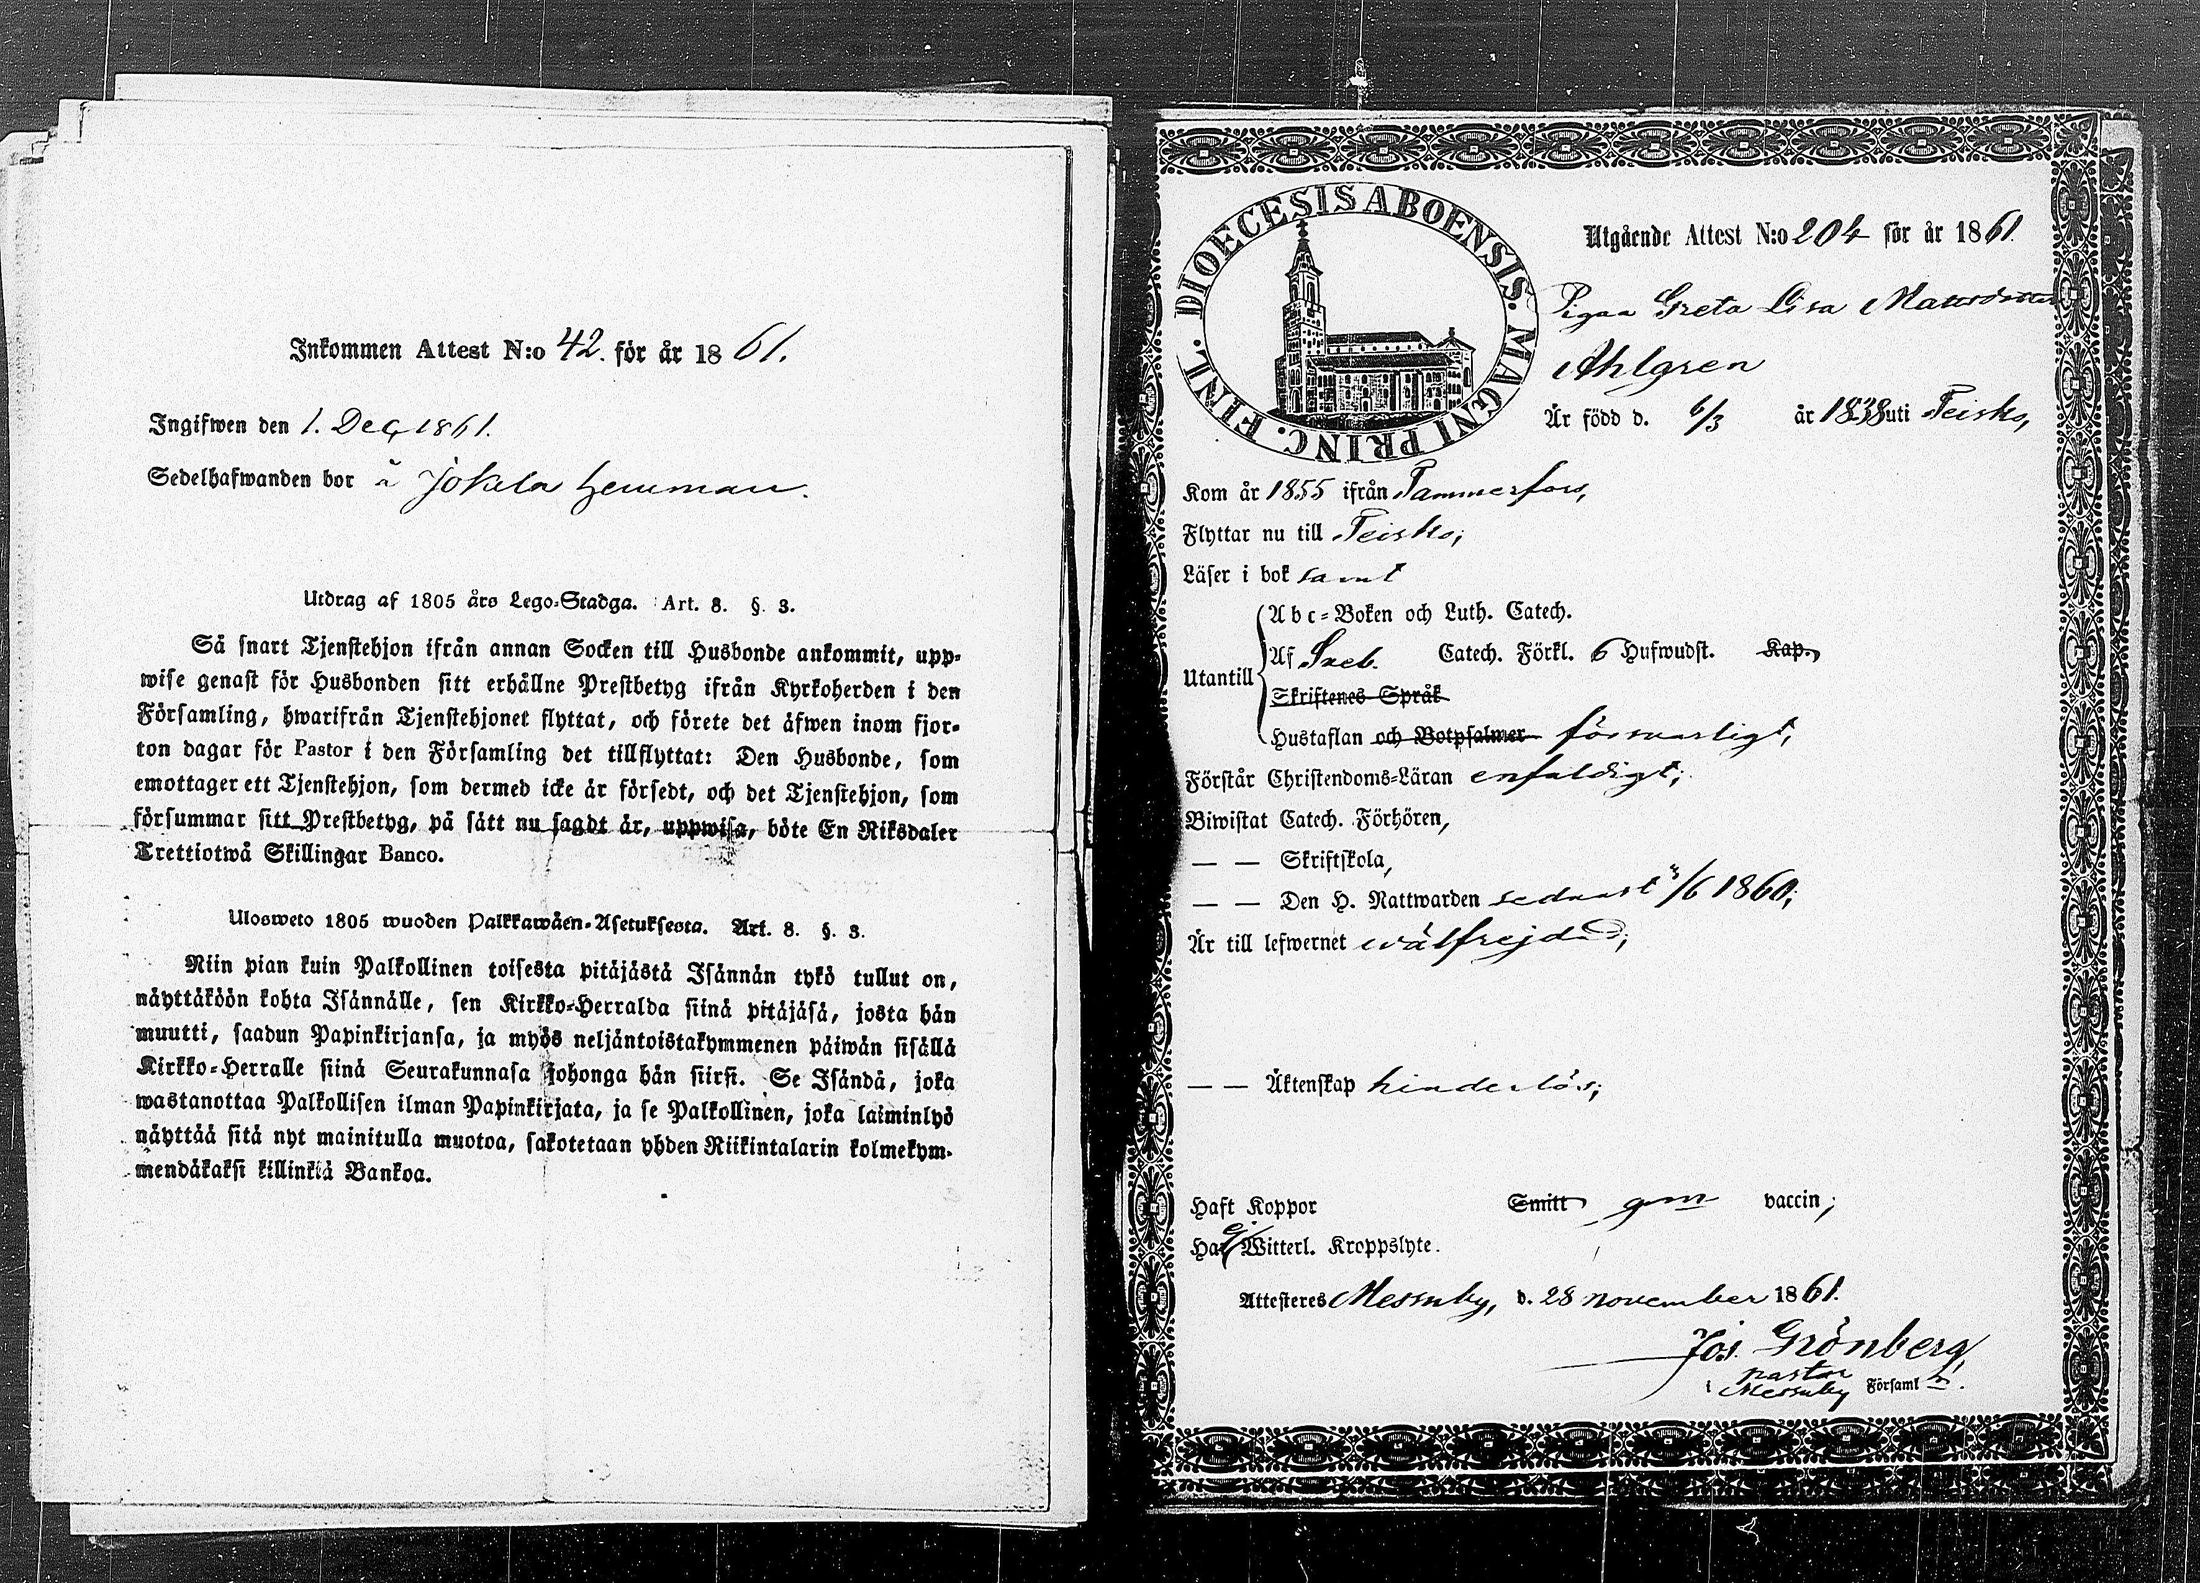 Inkommen Attest N:o 42. för år 1861.
Ingifwen den 1. Dec, 1861.
Sedelhafwanden bor å Jokela hemman.
Utdrag af 1805 års Lego-Stadga. Art. 8. §. 3.
Så snart Tjenstehjon ifrån annan Socken till Husbonde ankommit, upp-
wise genast för Husbonden sitt erhållne Prestbetyg ifrån Kyrkoherden i den
Församling, hwarifrån Tjenstehjonet flyttat, och förete det äfwen inom fjor-
ton dagar för Pastor i den Församling det tillflyttat: Den Husbonde, som
emottager ett Tjenstehjon, som dermed icke är försedt, och det Tjenstehjon, som
försummar sitt Prestbetyg, på sätt nu sagdt är, uppwisa, böte En Riksdaler
Trettiotwå Skillingar Banco.
Ulosweto 1805 wuoden Palkkawäen-Asetuksesta. Art. 8. §. 3.
Niin pian kuin Palkollinen toisesta pitäjästä Isännän tykö tullut on,
näyttäköön kohta Isännälle, sen Kirkko-Herralda siinä pitäjäsä, josta hän
muutti, saadun Papinkirjansa, ja myös neljäntoistakymmenen päiwän sisällä
Kirkko-Herralle siinä Seurakunnasa johonga hän siirsi. Se Isändä, joka
wastanottaa Palkollisen ilman Papinkirjata, ja se Palkollinen, joka laiminlyö
näyttää sitä nyt mainitulla muotoa, sakotetaan yhden Riikintalarin kolmekym-
mendäkaksi killinkiä Bankoa.
DIOECESIS ABOENSIS. MAGNI PRINC. FINL.
Utgående Attest N:o 204 för år 1861.
Pigan Greta Lisa Mattsdotter
Ahlgren
Är född d. 6/3 år 1838 uti Teisko,
Kom år 1855 ifrån Tammerfors,
Flyttar nu till Teisko;
Läser i bok samt
Utantill
Abc-Boken och Luth. Catech.
Af Sveb. Catech. Förkl. 6 Hufwudst. Kap.,
Skriftenes Språk
Hustaflan och Botpsalmer försvarligt,
Förstår Christendoms-Läran enfaldigt;
Biwistat Catech. Förhören,
— — Skriftskola,
— — Den H. Nattwarden sednast /6 1860;
Är till lefwernet wälfrejdad;
— — Äktenskap hinderlös;
Haft Koppor Smitt gm vaccin;
Har ej Witterl. Kroppslyte.
Attesteras Messuby, d. 28 november 1861.
Jos. Grönberg,
pastor
i Messuby Församl